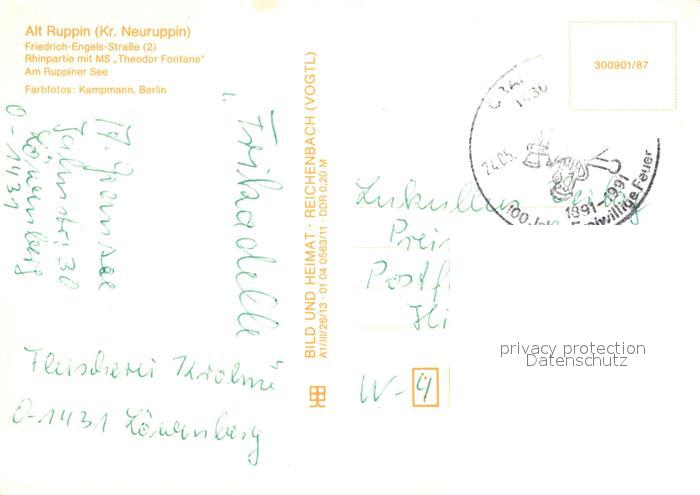 Alt Ruppin (Kr. Neuruppin)
Friedrich-Engels-Straße (2)
Rhinpartie mit MS „Theodor Fontane"
Am Ruppiner See
Farbfotos: Kampmann, Berlin
1. Frikadelle
Löwenberg
O-1431
Fleischerei
O-1431 Löwenberg
BILD UND HEIMAT · REICHENBACH (VOGTL)
A1/III/26/13 · 01 04 0563/11 · DDR 0,20 M
300901/87
1430
24.05.
1891-1991
100 Jahre Freiwillige Feuer
Lukullus
Preis
Postf
W-4
privacy protection
Datenschutz